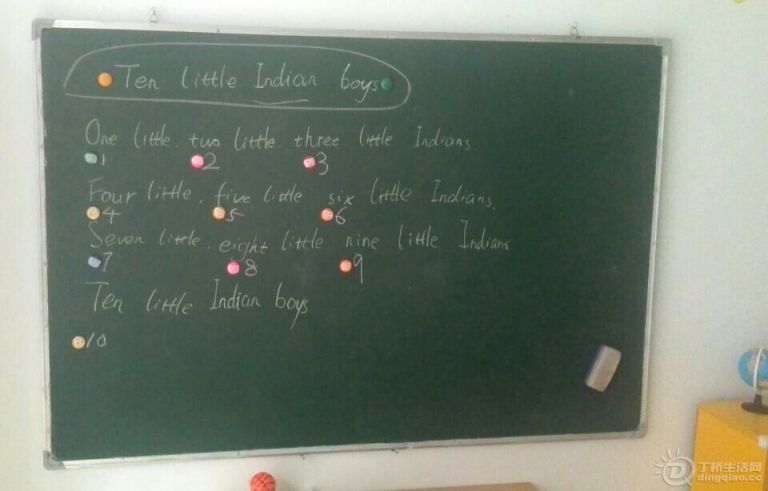 Ten little Indian boys
One little. two little. three little Indians
1 2 3
Four little. five little six little Indians.
4 5 6
Seven little. eight little nine little Indians
7 8 9
Ten little Indian boys
10
丁桥生活网
dingqiao.cc